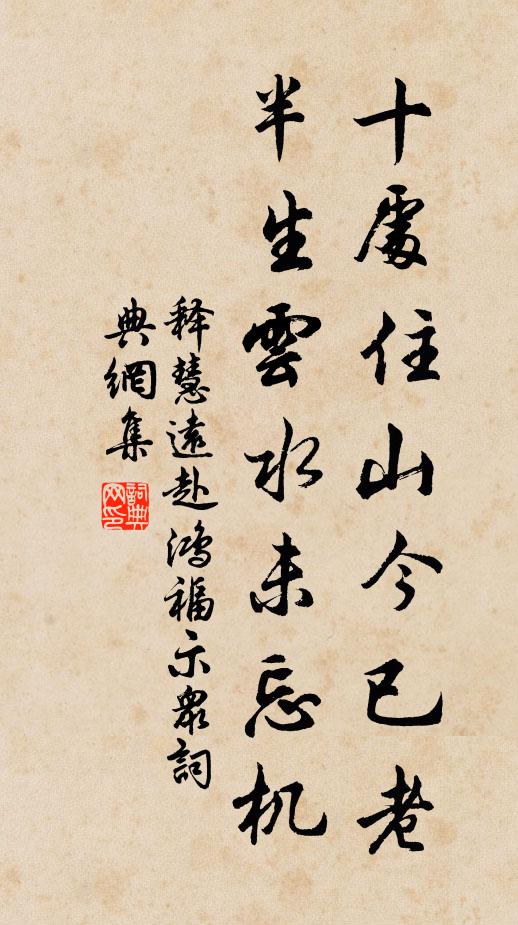 十處住山今已老
半生雲水未忘机
释慧遠赴鴻福示眾詞
典網集
詞典网印